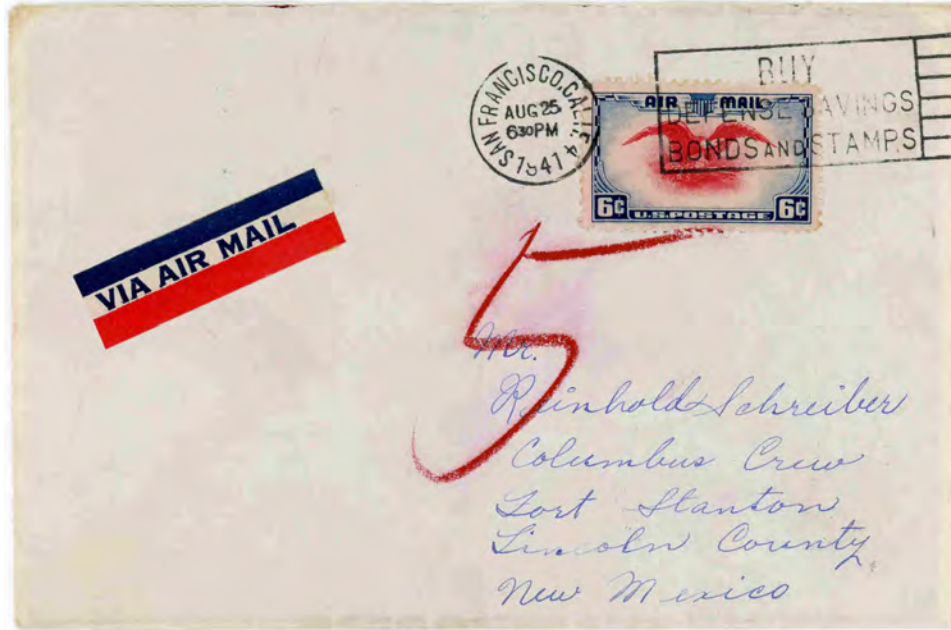 SAN FRANCISCO, CALIF. 4
AUG 25
6 30 PM
1941
BUY
DEFENSE SAVINGS
BONDS AND STAMPS
AIR MAIL
6¢ U.S. POSTAGE 6¢
VIA AIR MAIL
5
Mr.
Reinhold Schreiber
Columbus Crew
Fort Stanton
Lincoln County,
New Mexico